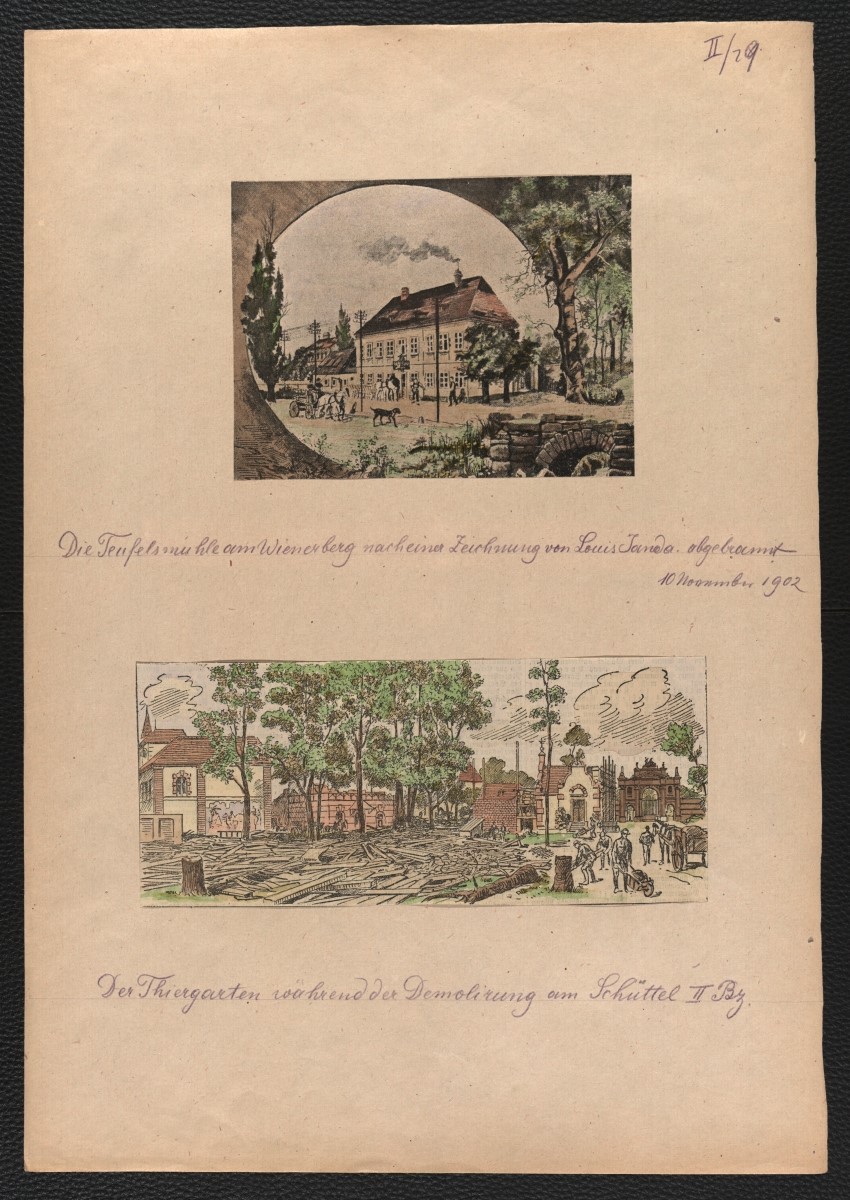 II/29
Die Teufelsmühle am Wienerberg nach einer Zeichnung von Louis Janda. abgebrannt
10 November 1902
Der Thiergarten während der Demolirung am Schüttel II Bz.